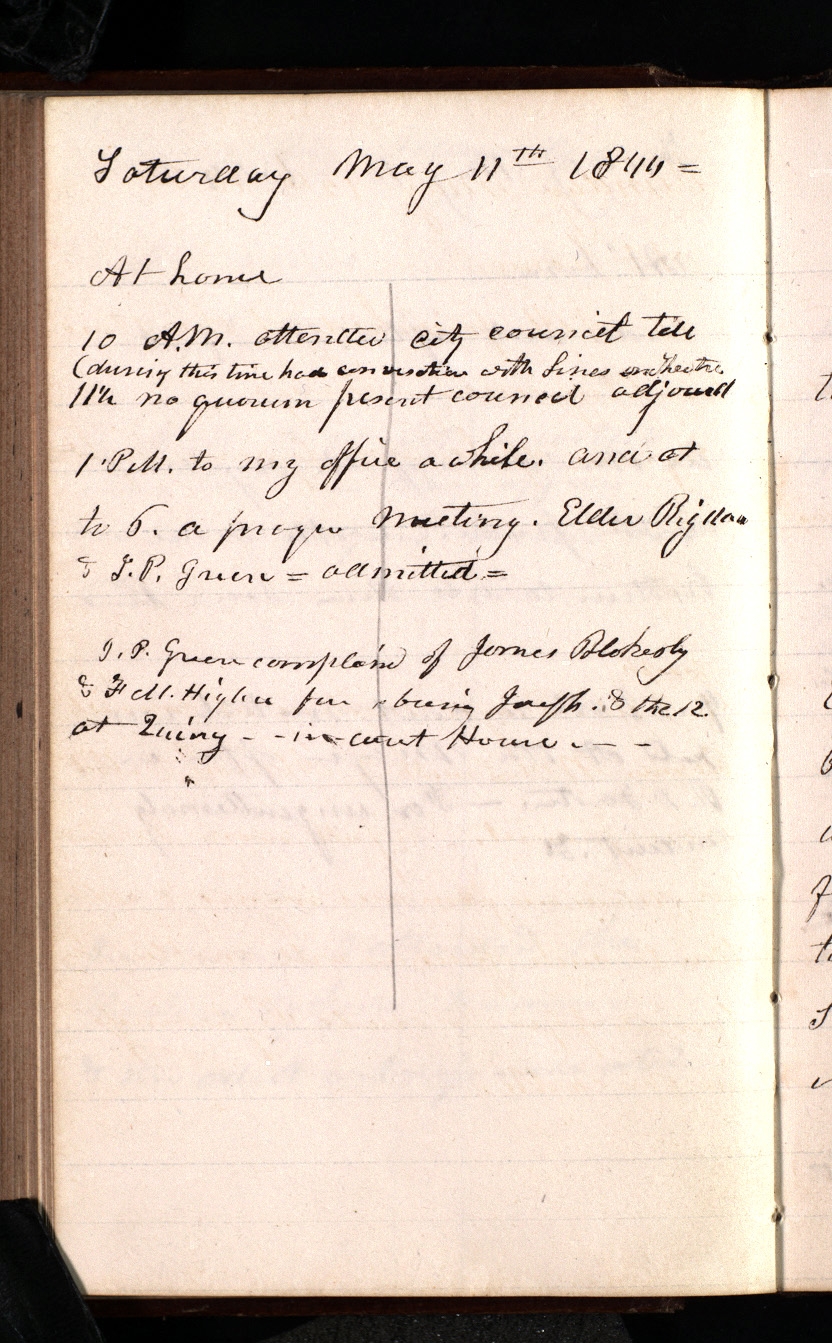 Saturday May 11th 1844 =
At home
10 A.M. attended city council till
(during this time had conversation with
11½ no quorum present council adjourd
1 P.M. to my office a while. and at
to 6. a prayer meeting. Elder Rigdon
& J.P. Green = admitted =
J. P. Green complaind of James Blakesly
& F M. Higbee for abusing Joseph. & the 12
at Quincy - - in court House. - -